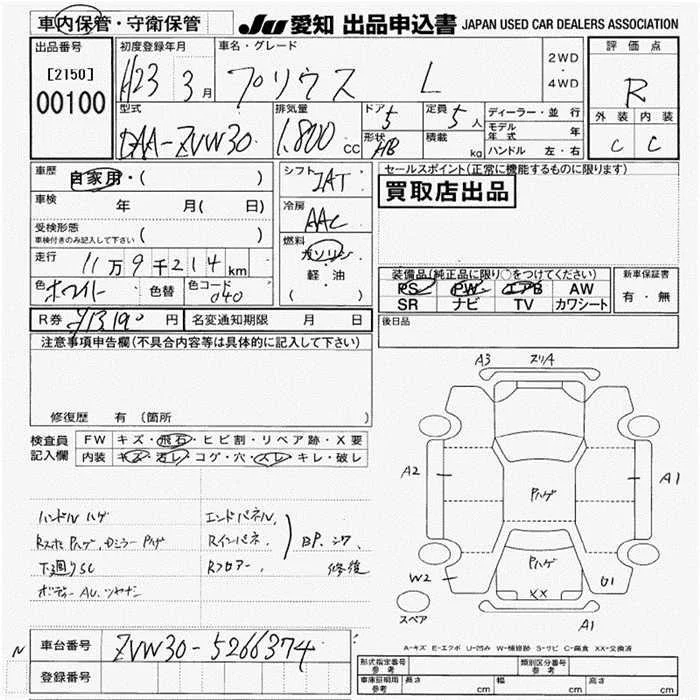 車内保管・守衛保管
JU 愛知 出品申込書 JAPAN USED CAR DEALERS ASSOCIATION
出品番号
[2150]
00100
初度登録年月
H23 3月
車名・グレード
プリウス L
2WD
・
4WD
評価点
R
外装 内装
C C
型式
DAA-ZVW30
排気量
1,800 cc
ドア 5
形状 HB
定員 5人
積載 kg
ディーラー・並行
モデル年式 年
ハンドル 左・右
車歴 自家用・( )
車検 年 月( 日)
受検形態
車検付きのみ記入して下さい ( )
走行 11万9千214km
色 ホワイト 色替 色コード 040
R券 ¥13190 円 名変通知期限 月 日
シフト IAT
冷房 AAC
燃料
ガソリン
・
軽・油
( )
セールスポイント(正常に機能するものに限ります)
買取店出品
装備品(純正品に限り○をつけてください)
PS PW エアB AW
SR ナビ TV カワシート
新車保証書
有・無
後日品
注意事項申告欄(不具合内容等は具体的に記入して下さい)
修復歴 有 (箇所 )
検査員記入欄
FW キズ・飛石・ヒビ割・リペア跡・X要
内装 キズ・汚レ・コゲ・穴・スレ・キレ・破レ
ハンドル ハゲ
下廻りSC
ボディーAU、ツヤナシ
エンドパネル、
Rインパネ、
Rフロアー、
BP、シワ、
修復
A3
A2
Pハゲ
A1
Pハゲ
W2
XX
U1
A1
スペア
A-キズ E-エクボ U-凹み W-補修跡 S-サビ C-腐食 XX-交換済
N
車台番号 ZVW30-5266374
登録番号
形式指定番号
参考
類別区分番号
参考
車庫証明用
参考
長さ cm 幅 cm 高さ cm